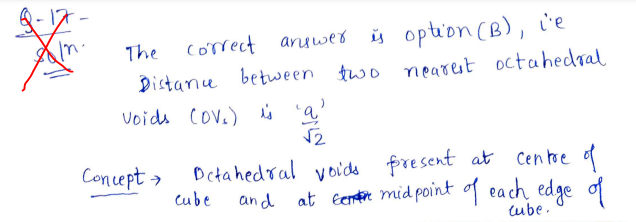 Q-17-
Soln.
The correct answer is option (B), i'e
Distance between two nearest octahedral
voids (OVs) is 'a'/√2
Concept → Octahedral voids present at centre of
cube and at mid point of each edge of
cube.